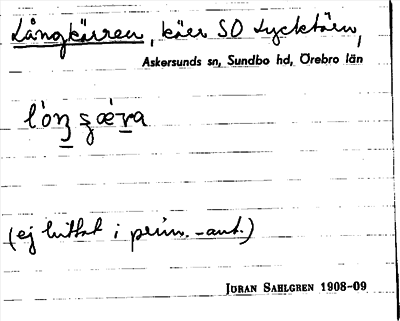 Långkärren, kärr SO Lycktärn,
Askersunds sn, Sundbo hd, Örebro län
(ej hittat i prim.-ant.)
Juran Sahlgren 1908-09